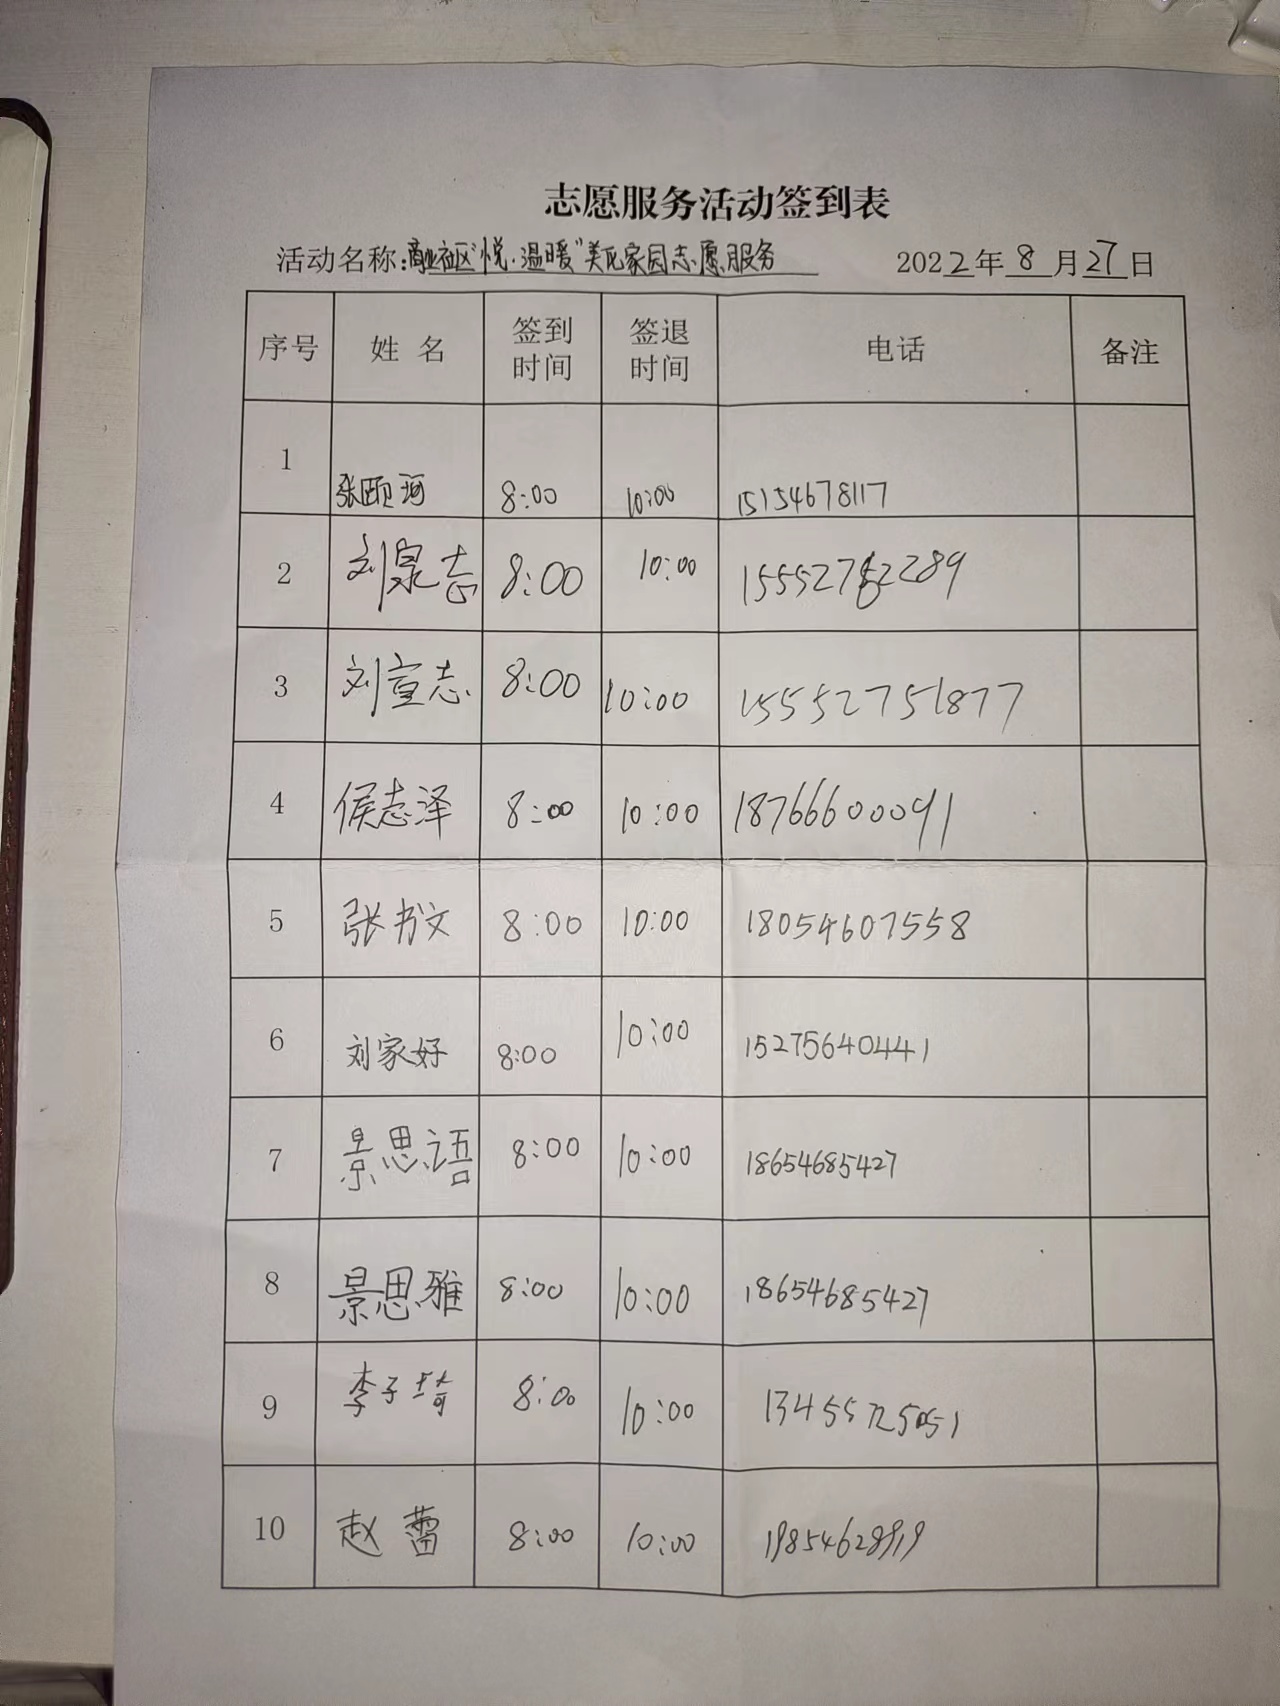 志愿服务活动签到表
活动名称:商业社区"悦·温暖"美化家园志愿服务 2022年8月27日
序号 姓名 签到时间 签退时间 电话 备注
1 张颐河 8:00 10:00 15154678117
2 刘泉志 8:00 10:00
3 刘宣志 8:00 10:00 15552751877
4 侯志泽 8:00 10:00 18766600091
5 张书文 8:00 10:00 18054607558
6 刘家好 8:00 10:00 15275640441
7 景思语 8:00 10:00 18654685427
8 景思雅 8:00 10:00 18654685427
9 李子琦 8:00 10:00
10 赵蕾 8:00 10:00 19854628919